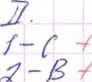 II.
1-C +
2-B +